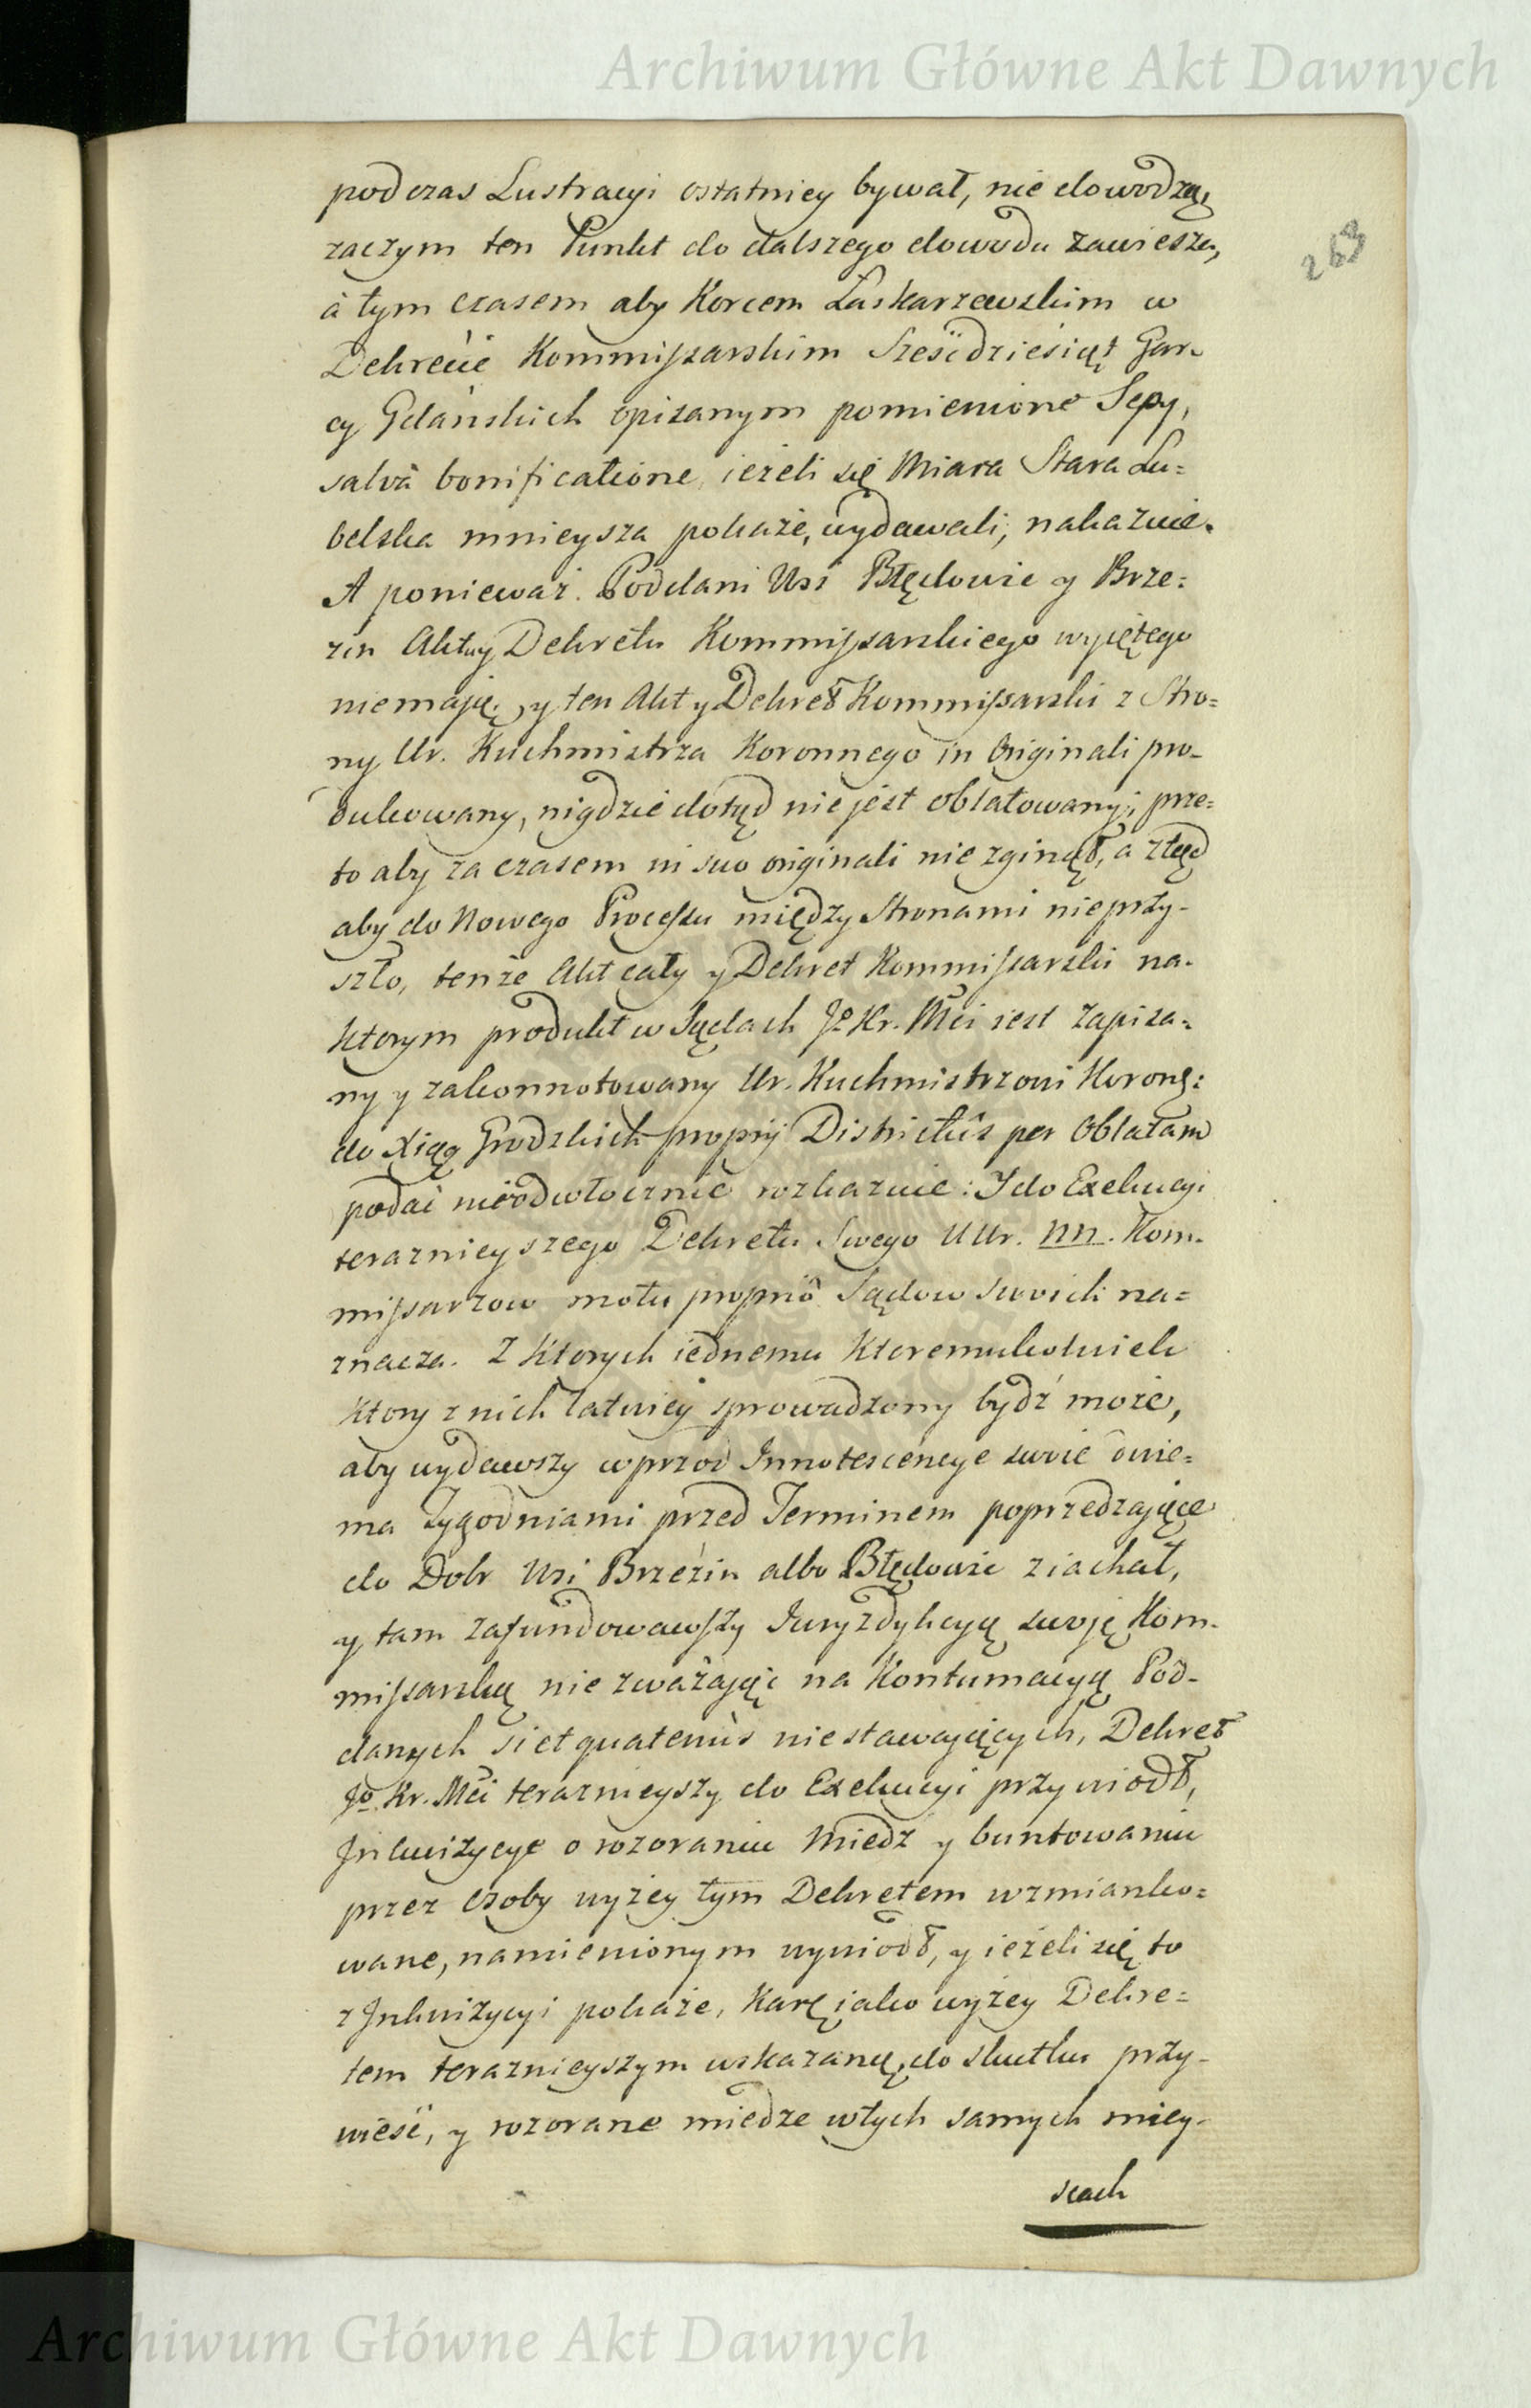 Archiwum Główne Akt Dawnych
263
podczas Lustracyi ostatniey bywał, nie dowodzą,
zaczym ten Punkt do dalszego dowodu zawiesza,
á tym czasem aby Korcem Łaskarzewskim w
Dekrecie Kommissarskim Sześćdziesiąt Gar-
cy Gdańskich opisanym pomienione Sepy,
salvâ bonificatione, ieżeli się Miara Stara Lu=
belska mnieysza pokaże, wydawali, nakazuie.
A ponieważ Poddani Wsi Błędowie y Brze=
zin Aktu y Dekretu Kommissarskiego wyiętego
niemaią, y ten Akt y Dekret Kommissarski z Stro=
ny Ur. Kuchmistrza Koronnego in Originali pro-
dukowany, nigdzie dotąd nie jest oblatowany; prze=
to aby za czasem in suo originali nie zginął, a ztąd
aby do Nowego Processu między Stronami nieprzy-
szło, tenże Akt cały y Dekret Kommissarski na-
ktorym produkt w Sądach Jo Kr. Mci iest zapisa=
ny y zakonnotowany Ur. Kuchmistrzowi Koronn:
do Xiąg Grodzkich proprij Districtûs per Oblatam
podać nieodwłocznie rozkazuie: I do Exekucyi
teraznieyszego Dekretu Swego UUr. NN. Kom-
missarzow motu propriô Sądow swoich na=
znacza. Z ktorych iednemu ktoremukolwiek
ktory z nich łatwiey sprowadzony bydź może,
aby wydawszy wprzod Innotescencye swoie dwie=
ma Tygodniami przed Terminem poprzedzaiące
do Dobr Wsi Brzezin albo Błędowie ziachał,
y tam zafundowawszy Iuryzdykcyą swoię Kom-
missarską nie zważaiąc na Kontumacyą Pod-
danych si et quatenùs niestawaiących, Dekret
Jo Kr. Mci teraznieyszy do Exekucyi przywiodł,
Inkwizycye o rozoraniu Miedz y buntowaniu
przez Osoby wyżey tym Dekretem wzmianko=
wane, namienionym wywiodł, y ieżeli się to
z Inkwizycyi pokaże, Karę iako wyżey Dekre=
tem teraznieyszym wskazaną, do skutku przy-
wieść, y rozorane miedze w tych samych miey-
scach
Archiwum Główne Akt Dawnych